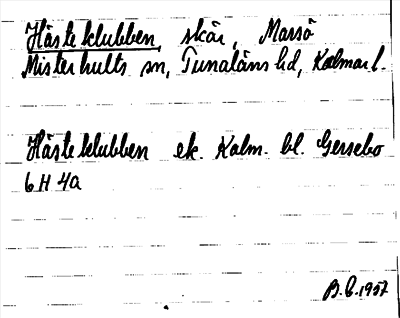 Hästeklubben, skär, Marsö
Misterhults sn, Tunaläns hd, Kalmar l.
Hästeklubben ek. Kalm. bl. Gersebo
6 H 4a
B.E. 1957